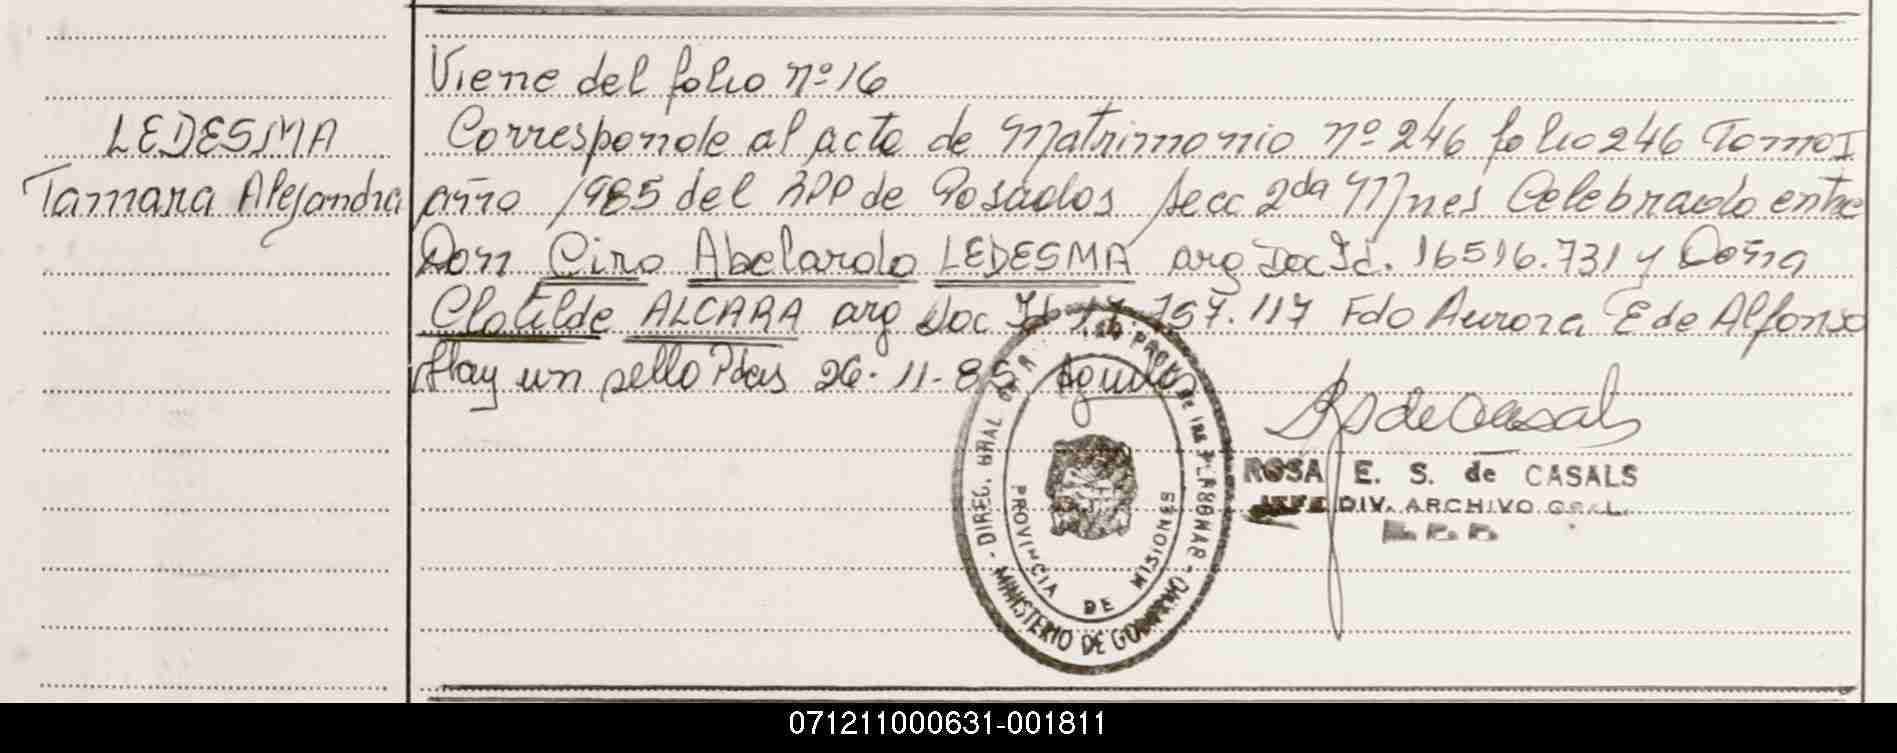 Viene del folio nº 16
LEDESMA
Tamara Alejandra
Corresponde al acta de Matrimonio nº 246 folio 246 Tomo I
año 1985 del RPP de Posadas secc 2da Mnes Celebrado entre
Don Ciro Abelardo LEDESMA arg Doc Id. 16516.731 y Doña
Clotilde ALCARA arg Doc Id 17.757.117 Fdo Aurora E de Alfonso
Hay un sello Pdas 26-11-85
DIREC. GRAL DE LAS PERSONAS
MINISTERIO DE GOBIERNO
PROVINCIA DE MISIONES
ROSA E. S. de CASALS
JEFE DIV. ARCHIVO GRAL.
071211000631-001811